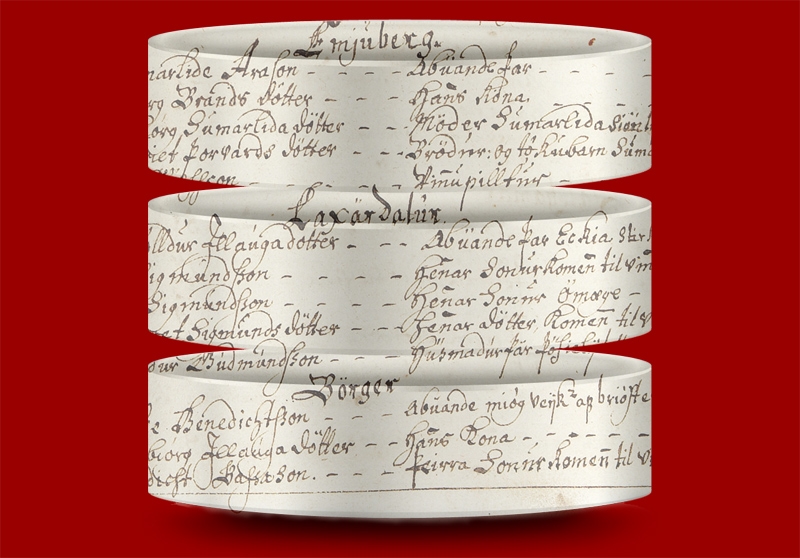 Smjüberg.
marlide Arason - - - - Abüande þar - - -
rg Brands dótter - - - Hans Kona.
börg Sumarlida dótter - - - Móder Sumarlida
iet Þorvards dótter - - - Bróder: og tókubarn Sum
- - - Vmüpilltur -
Laxárdalür.
lldur Jllauga dótter - - - Abüande þar Eckia
Sigmündsson - - - - Henar Sonur Komen til vin
Sigmündsson - - - - Henar Sonur Ómøre -
et Sigmünds dótter - - Henar dótter, Komen til v
dur Gudmündsson - - - - Hüsmadur þar
Börger
e Benedichtsson - - - - Abüande miög veik
biörg Jllauga dótter - - - Hans Kona - - - -
dicht - - - - Þeirra Sonur Komen til v